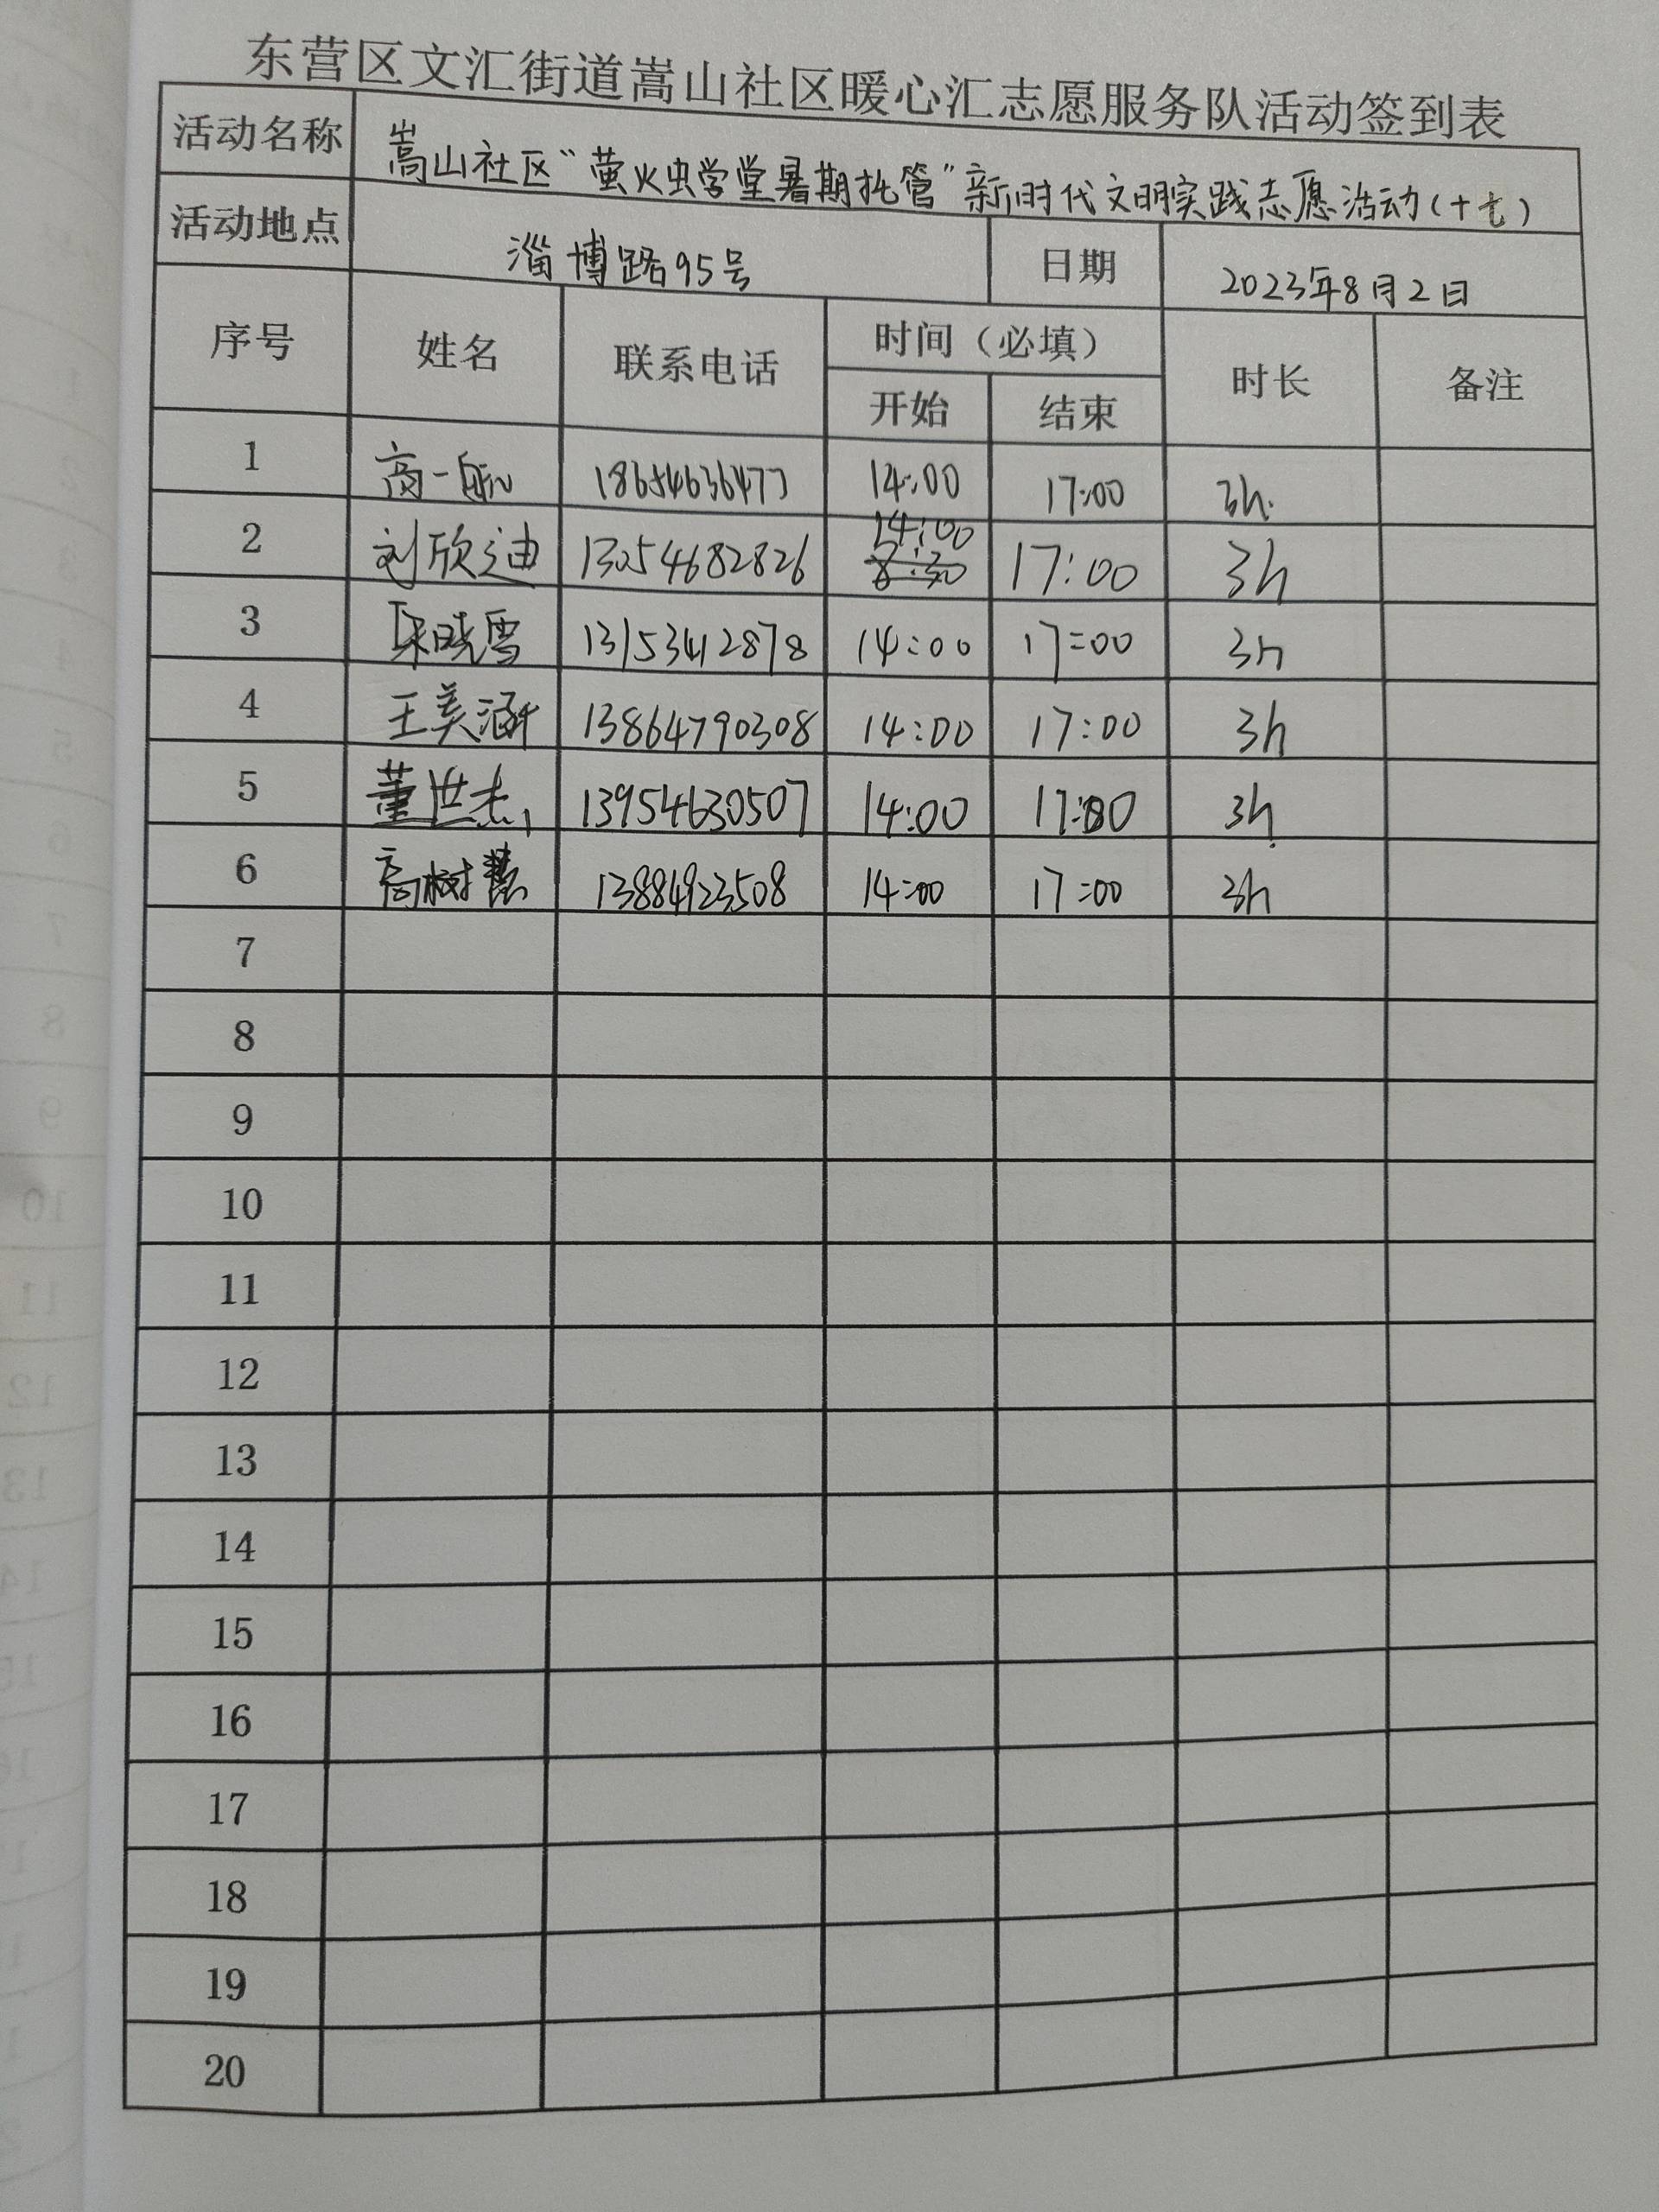 东营区文汇街道嵩山社区暖心汇志愿服务队活动签到表
活动名称 嵩山社区“萤火虫学堂暑期托管”新时代文明实践志愿活动(十七)
活动地点 淄博路95号 日期 2023年8月2日
序号 姓名 联系电话 时间（必填） 时长 备注
开始 结束
1 商一航 18654636477 14:00 17:00 3h.
14:00
2 刘欣迪 13054682826 8:30 17:00 3h
3 晓雪 13153412878 14:00 17:00 3h
4 王美涵 13864790308 14:00 17:00 3h
5 董世杰 13954630507 14:00 17:00 3h
6 高树慧 13884923508 14:00 17:00 3h
7
8
9
10
11
12
13
14
15
16
17
18
19
20